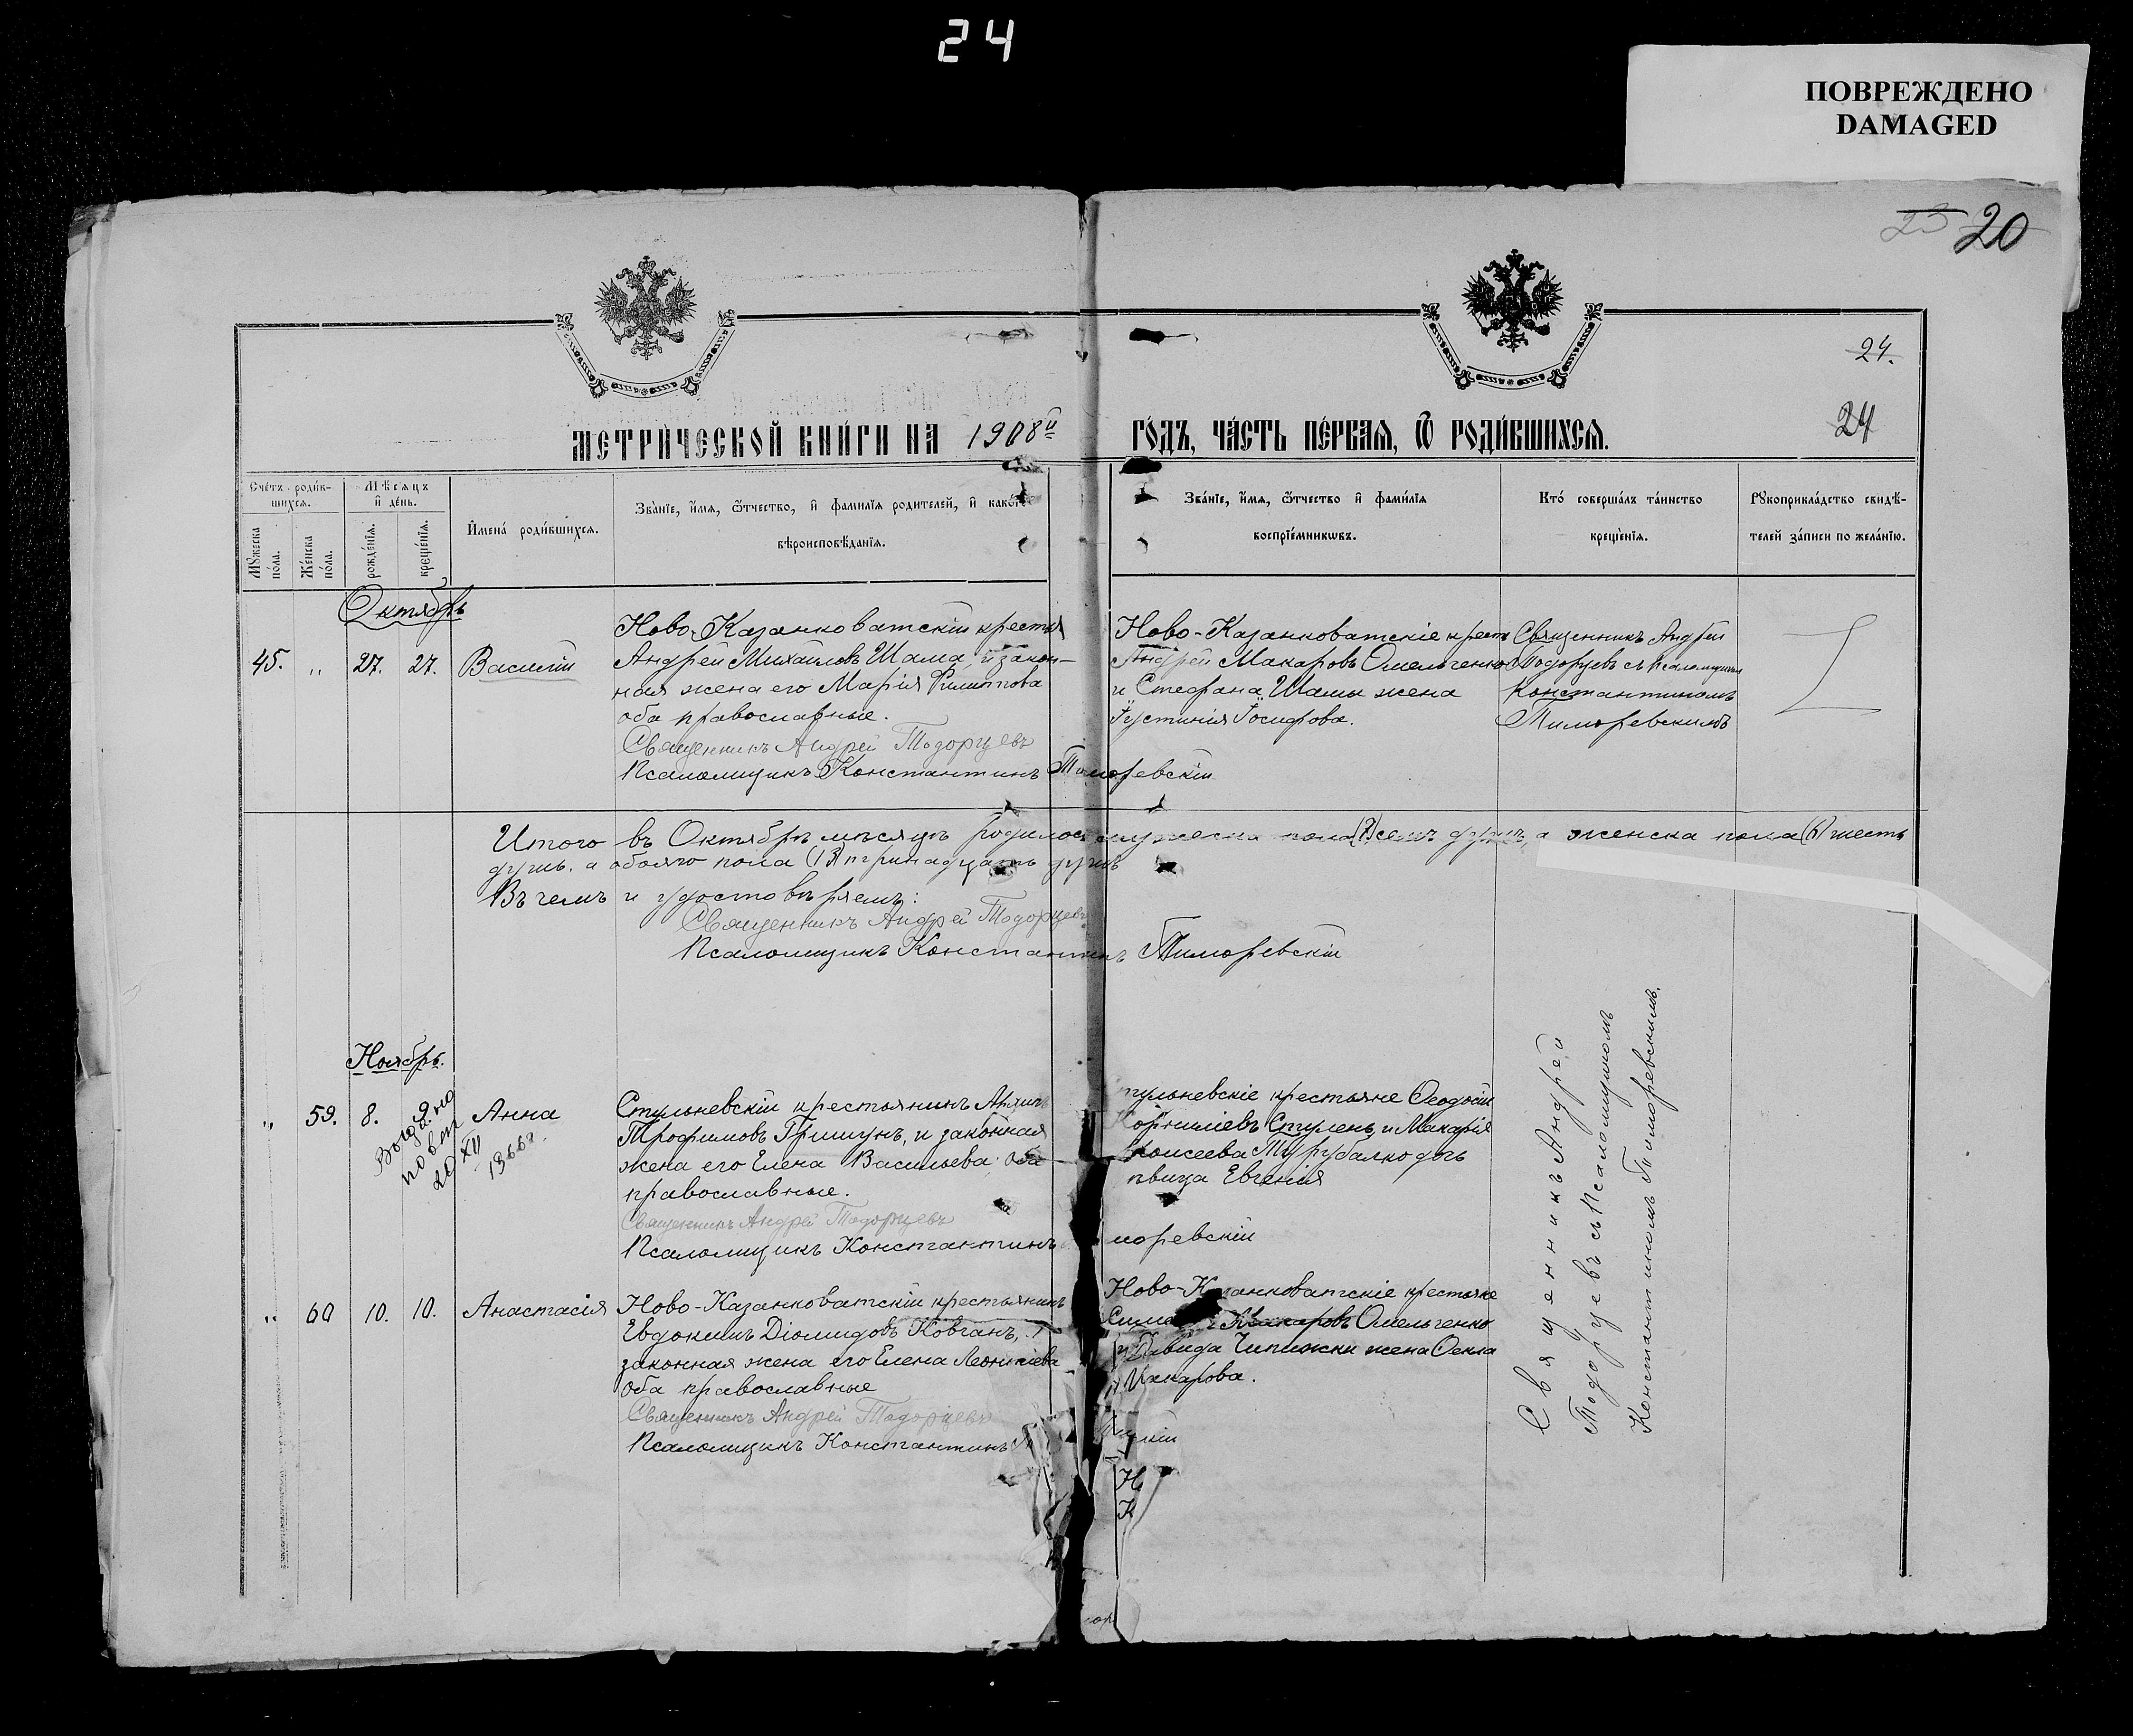 24
ПОВРЕЖДЕНО
DAMAGED
23 20
24.
24
МЕТРИЧЕСКОЙ КНИГИ НА 1908й ГОДЪ, ЧАСТЬ ПЕРВАЯ, Ѿ РОДИВШИХСЯ.
Счетъ родившихся.
Мужеска пола.
Женска пола.
Мѣсяцъ и день.
рожденія.
крещенія.
Имена родившихся.
Званіе, имя, ѿчество, и фамилія родителей, и какого
вѣроисповѣданія.
Званіе, имя, ѿчество и фамилія
воспріемниковъ.
Кто совершалъ таинство
крещенія.
Рукоприкладство свидѣ-
телей записи по желанію.
Октябрь
45. „ 27. 27. Василій
Ново-Казанковатскій крестья
Андрей Михайловъ Шама, и закон-
ная жена его Марія Филиппова
оба православные.
Священникъ Андрей Тодорцевъ
Псаломщикъ Константинъ Тиморевскій
Ново-Казанковатскіе крест
Андрей Макаровъ Омельченко
и Стефана Шамы жена
Іустинія Іосифова.
Священникъ Андрей
Тодорцевъ съ Псаломщикомъ
Константиномъ
Тиморевскимъ
Итого въ Октябрѣ мѣсяцѣ родилось мужеска пола (7) семь душъ, а женска пола (6) шесть
душъ, а обоего пола (13) тринадцать душъ
Въ чемъ и удостовѣряемъ:
Священникъ Андрей Тодорцевъ
Псаломщикъ Константинъ Тиморевскій
Ноябрь.
„ 59. 8. 9. Анна
Выдано
повт
20 XII
Стульневскій крестьянинъ Архипъ
Трофимовъ Гришунъ, и законная
жена его Елена Васильева оба
православные.
Священникъ Андрей Тодорцевъ
Псаломщикъ Константинъ
моревскій
тульневскіе крестьяне Ѳеодосій
Корниліевъ Стулень, и Макарія
Моисеева Турубалко дочь
двица Евгенія
„ 60 10. 10. Анастасія
Ново-Казанковатскій крестьянинъ
Евдокимъ Діомидовъ Ковганъ, и
законная жена его Елена Леонтіева
оба православные
Священникъ Андрей Тодорцевъ
Псаломщикъ Константинъ
скій
Ново-Казанковатскіе крестьяне
Макаровъ Омельченко
и Давида Чипижки жена Ѳекла
Макарова.
Н
К
Священникъ Андрей
Тодорцевъ съ Псаломщикомъ
Константиномъ Тиморевскимъ.